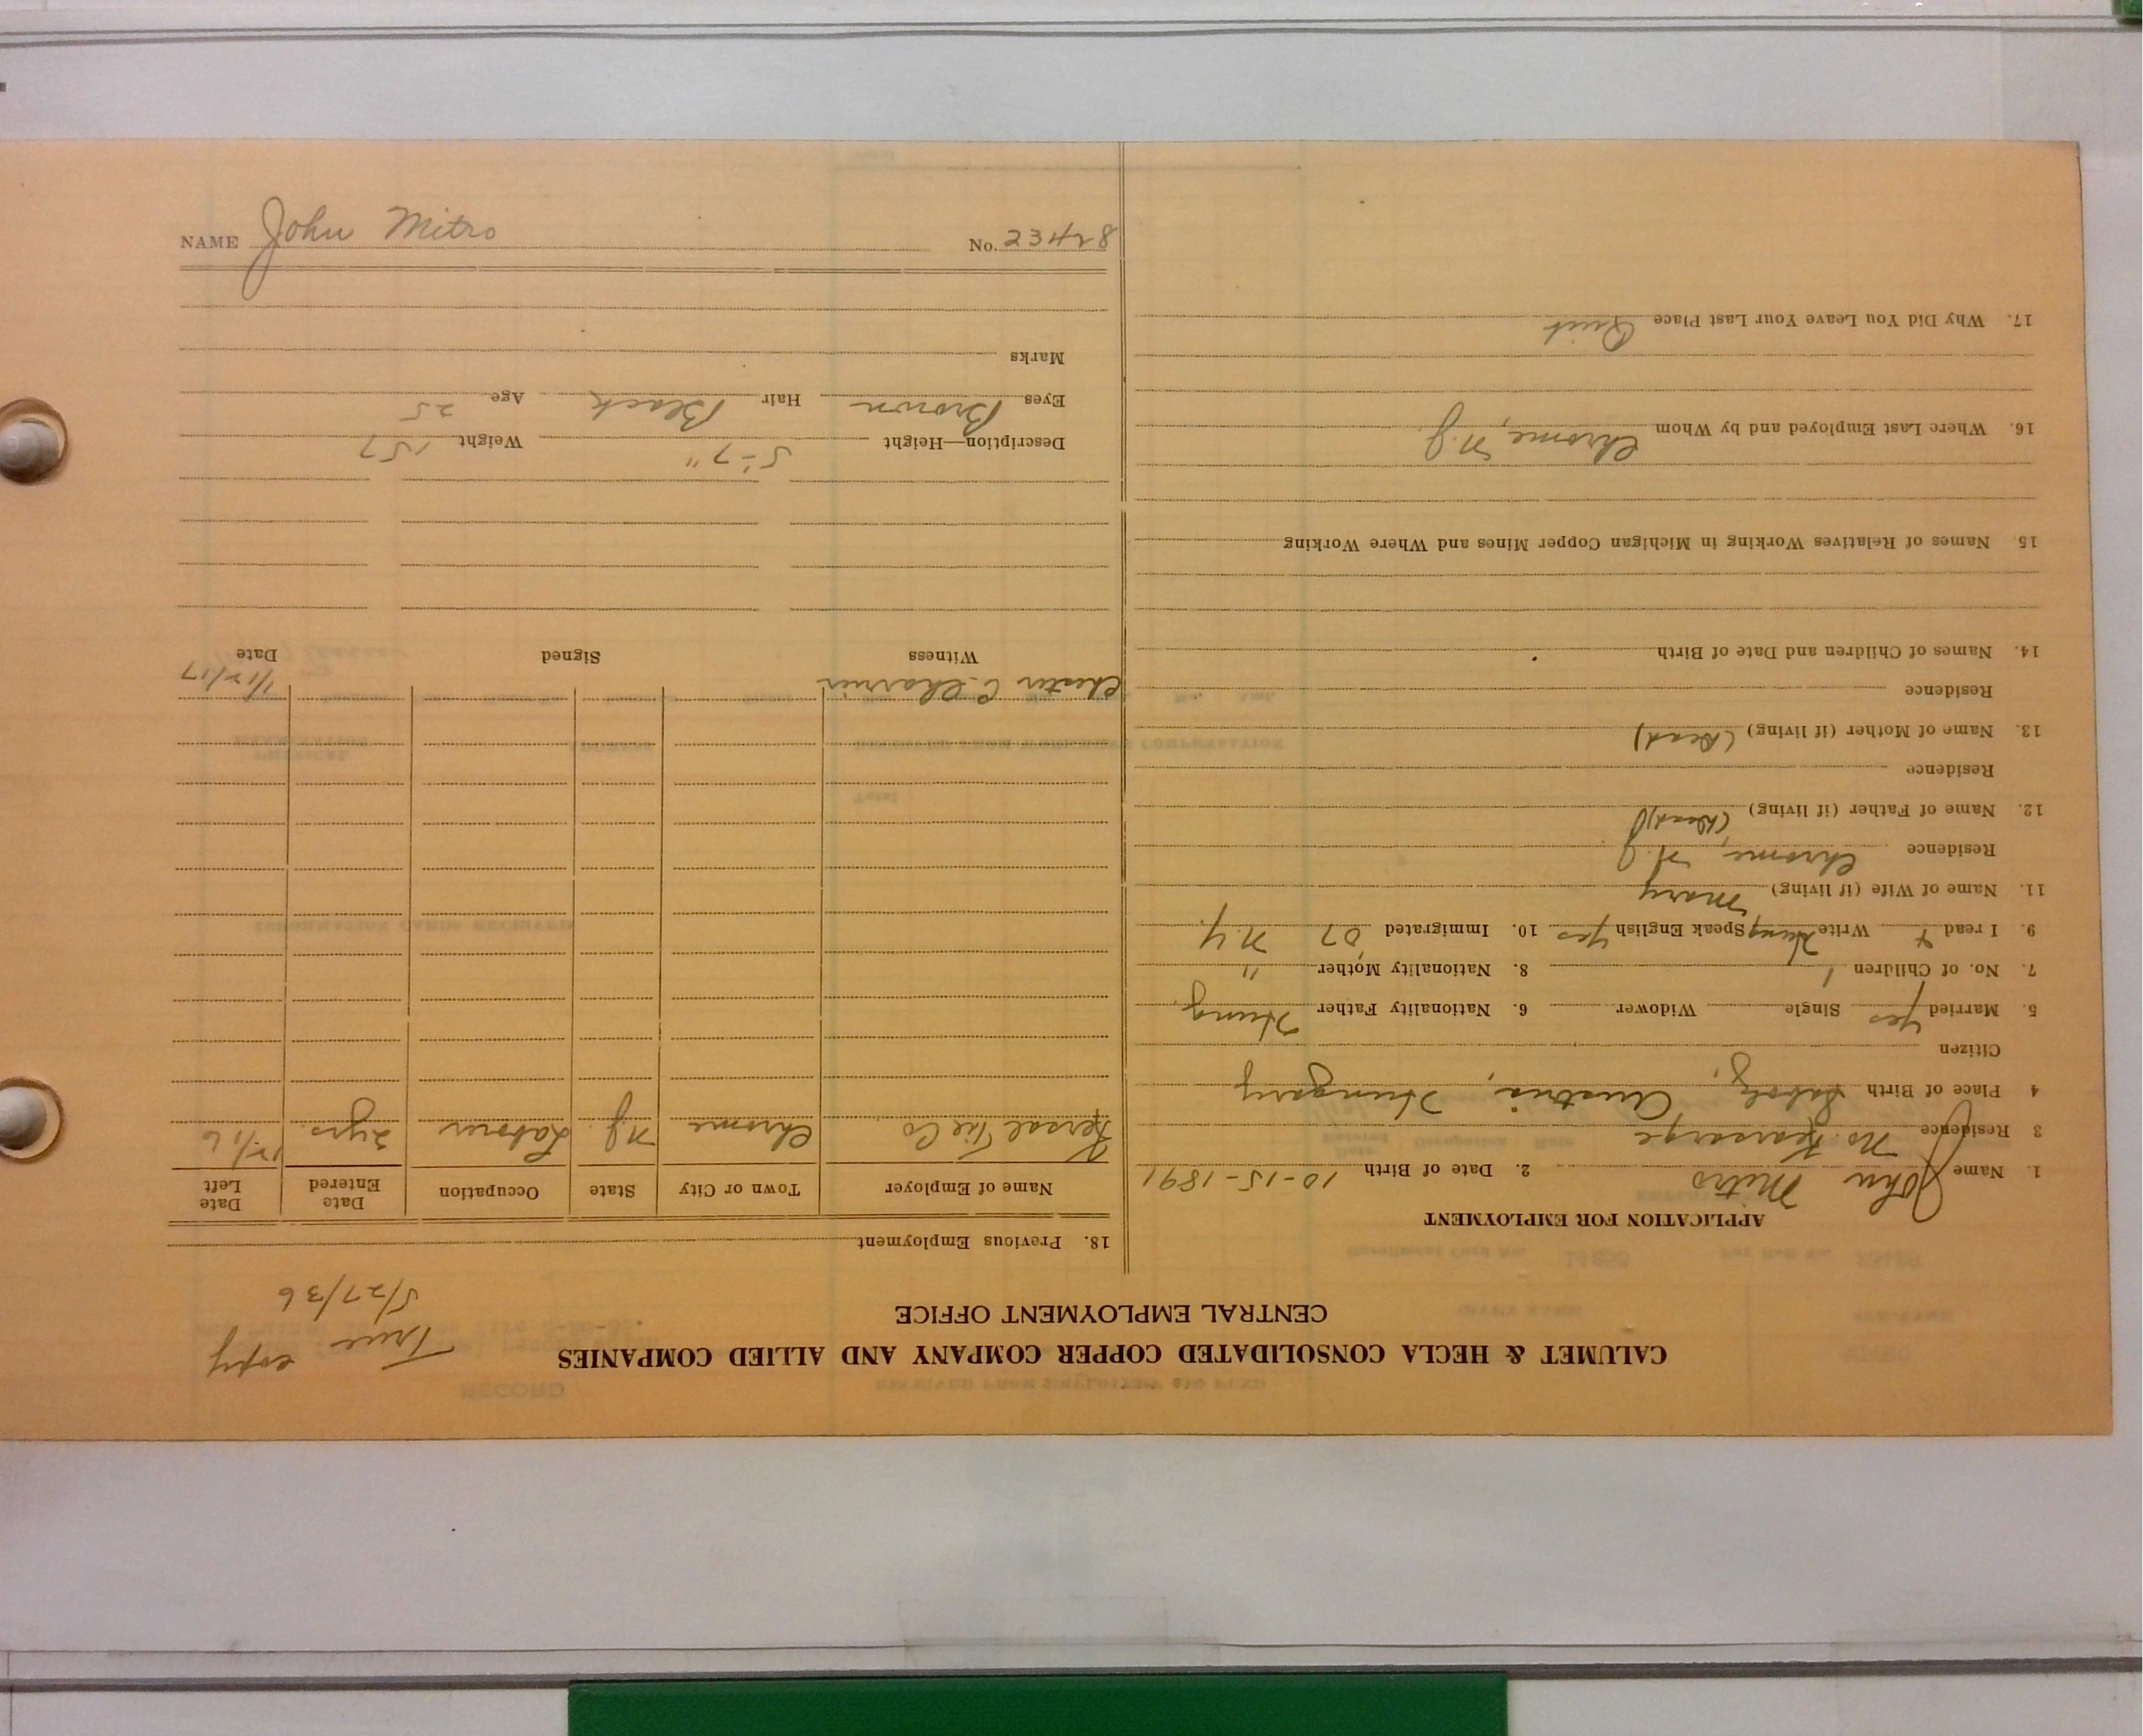 CALUMET & HECLA CONSOLIDATED COPPER COMPANY AND ALLIED COMPANIES
CENTRAL EMPLOYMENT OFFICE
True copy
5/27/36
APPLICATION FOR EMPLOYMENT
1. Name John Mitro 2. Date of Birth 10-15-1891
3 Residence No. Kearsarge
4 Place of Birth Austria, Hungary
Citizen
5. Married yes Single Widower 6. Nationality Father Hung.
7. No. of Children 1 8. Nationality Mother "
9. I read + Write Hung Speak English yes 10. Immigrated 07 N.Y.
11. Name of Wife (if living) Mary
Residence Chrome, N.J.
12. Name of Father (if living) (Dead)
Residence
13. Name of Mother (if living) (Dead)
Residence
14. Names of Children and Date of Birth
15. Names of Relatives Working in Michigan Copper Mines and Where Working
16. Where Last Employed and by Whom Chrome, N.J.
17. Why Did You Leave Your Last Place Quit
18. Previous Employment
Name of Employer Town or City State Occupation Date Entered Date Left
Co Chrome N.J. Laborer 2 yrs. 12/16
Chester C. Charrier 1/12/17
Witness Signed Date
Description—Height 5'-7" Weight 157
Eyes Brown Hair Black Age 25
Marks
NAME John Mitro No. 23428